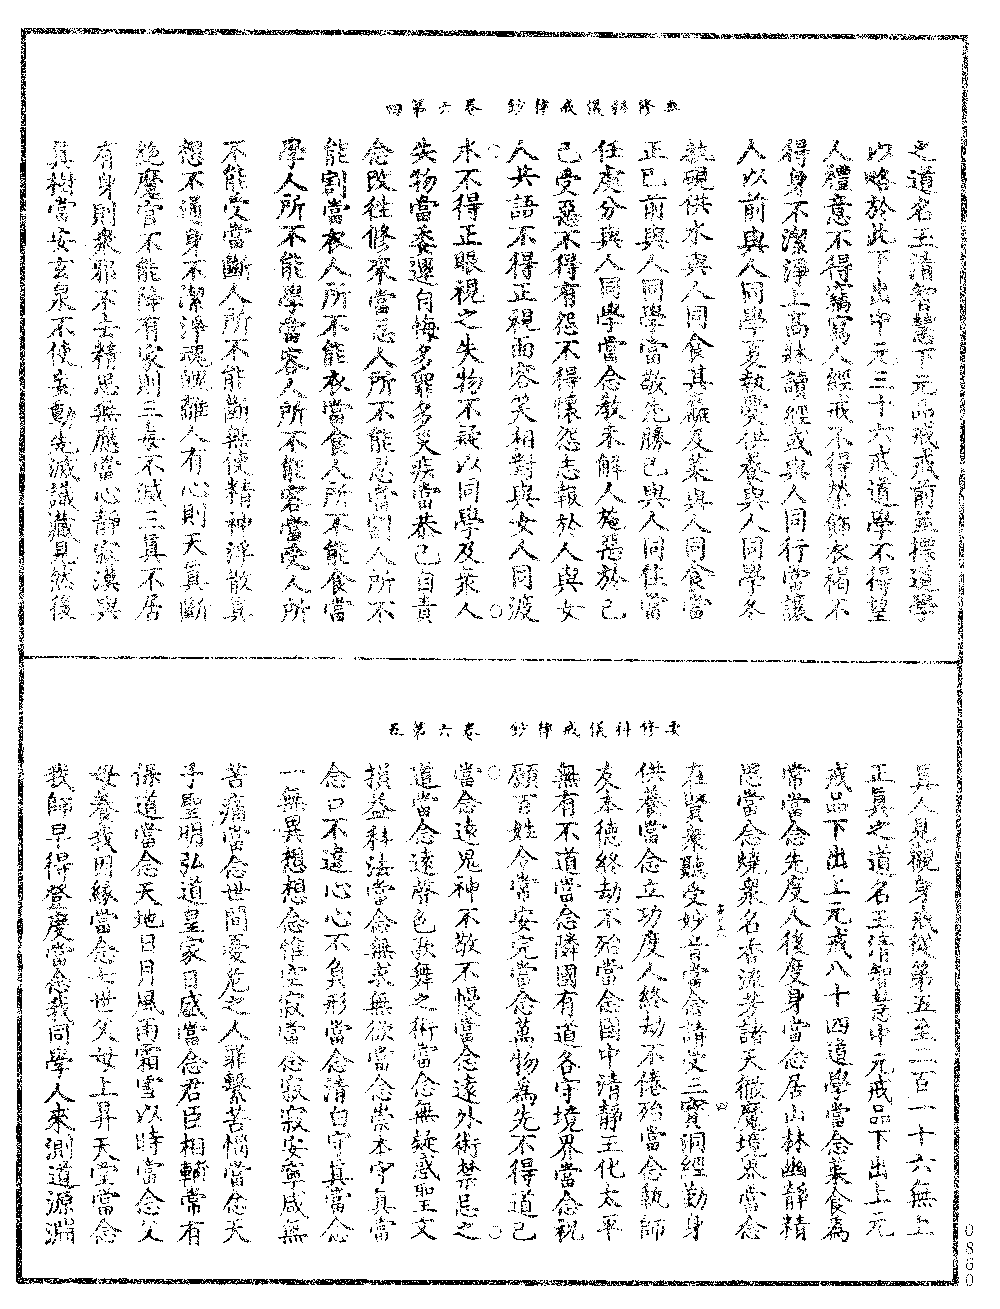 要修科儀戒律鈔　卷六第四
之道名玉清智慧下元品戒戒前至撰道學
以略於此下出中元三十六戒道學不得望
人禮意不得竊寫人經戒不得榮飾衣褐不
得身不潔淨上高牀讀經或與人同行當讓
人以前與人同學更執愛供養與人同學冬
執硯供水與人同食其麤及菜與人同食當
正已前與人同學當敬先勝已與人同住當
任處分與人同學當念教未解人施惡於已
已受惡不得有怨不得懷怨恚報於人與女
人共語不得正視面容笑相對與女人同渡
水不得正眼視之失物不疑以同學及衆人
失物當委運自悔多罪多災疾當恭已自責
念改往修來當忍人所不能忍當割人所不
能割當衣人所不能衣當食人所不能食當
學人所不能學當容人所不能容當受人所
不能受當斷人所不能斷無使精神浮散真
想不通身不潔淨魂魄離人有心則天真斷
絕魔官不能降有家則三毒不滅三真不居
有身則衆邪不去精思無應當心靜寂漠與
真相當安玄泉不使妄動先滅識藏見然後
要修科儀戒律鈔　卷六第五
真人見觀身戒從第五至二百一十六無上
正真之道名玉清智慧中元戒品下出上元
戒品下出上元戒八十四道學當念菜食為
常當念先度人後度身當念居山林幽靜精
思當念燒衆名香流芳諸天徹魔境界當念
在賢衆聽受妙旨當念請受三寶洞經勤身
供養當念立功度人終劫不倦殆當念執師
友本德終劫不殆當念國中清靜王化太平
無有不道當念隣國有道各守境界當念祝
願百姓令常安完當念萬物為先不得道已
當念遠鬼神不敬不慢當念遠外術禁忌之
道當念遠聲色歌舞之術當念無疑惑聖文
損益秘法當念無求無欲當念崇本守真當
念口不違心心不負形當念清白守真當念
一無異想想念惟空寂當念寂寂安寧咸無
苦痛當念世間憂危之人罪繫苦惱當念天
子聖明弘道皇家日盛當念君臣相輔常有
保道當念天地日月風雨霜雪以時當念父
母養我因緣當念七世父母上昇天堂當念
我師早得登度當念我同學人來測道源淵
0860